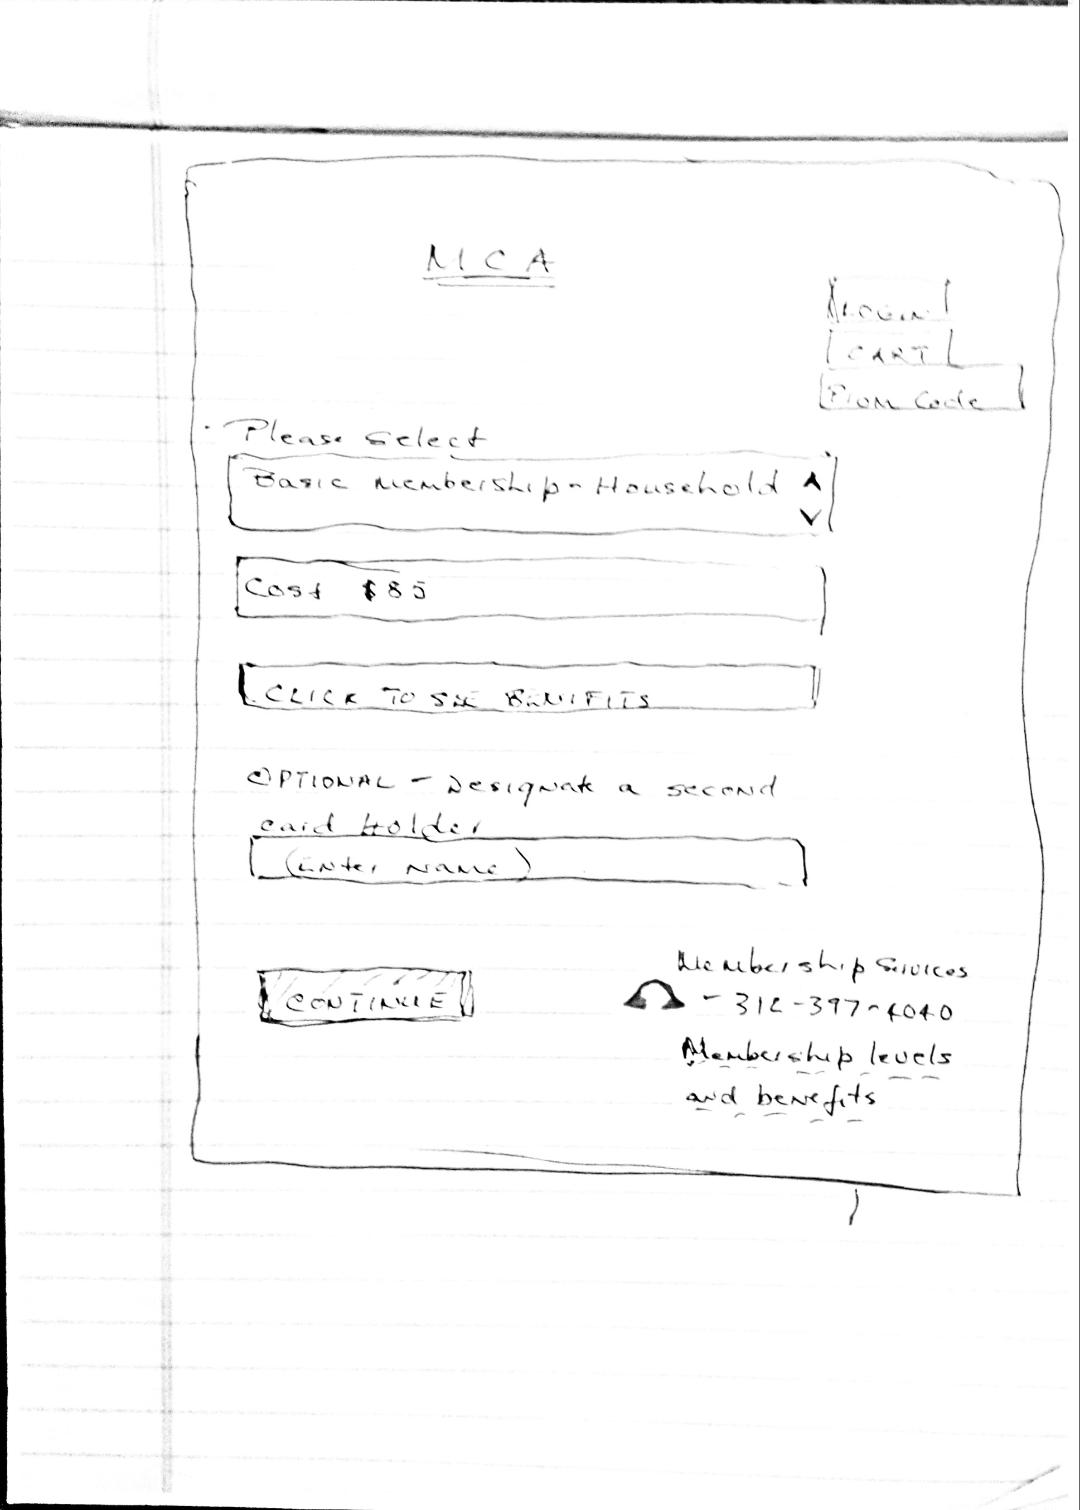 MCA
LOGIN
CART
Prom Code
Please select
Basic Membership - Household
Cost $85
CLICK TO SEE BENIFITS
OPTIONAL - Designate a second
card Holder
(Enter Name)
CONTINUE
Membership Services
- 312-397-4040
Membership levels
and benefits